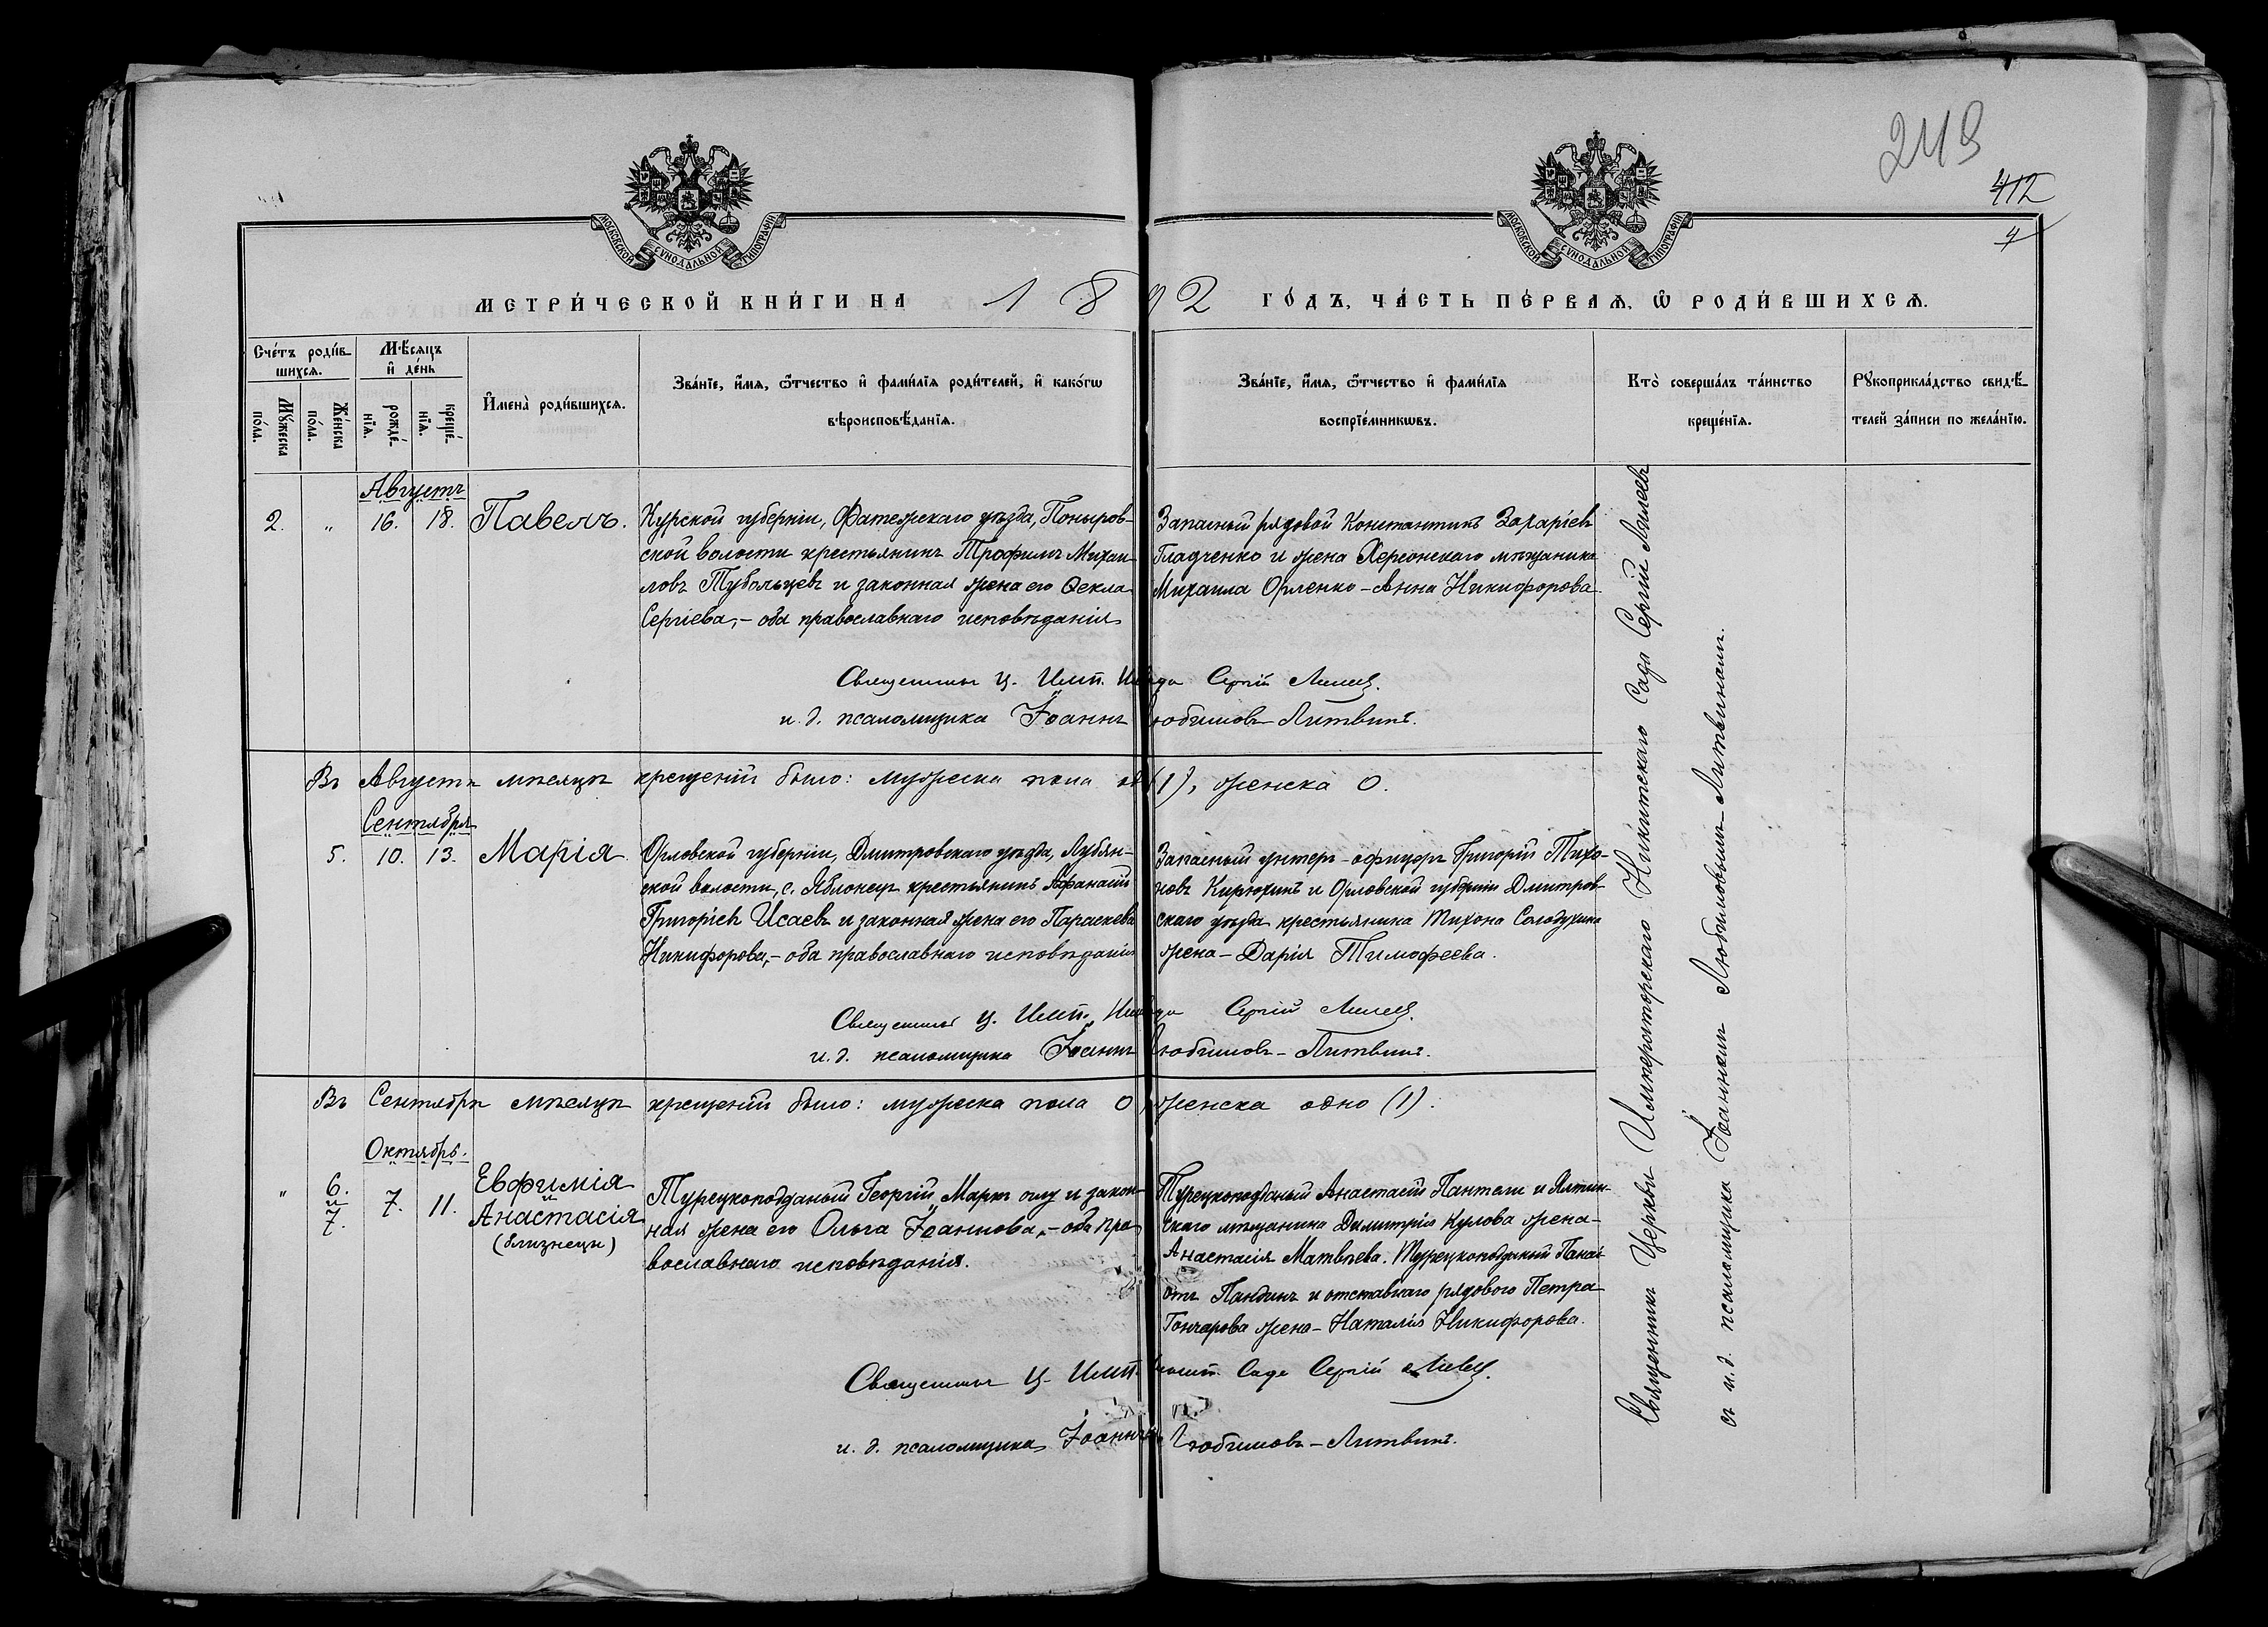 249
412
4
МОСКОВСКОЙ СѴНОДАЛЬНОЙ ТИПОГРАФІИ
МОСКОВСКОЙ СѴНОДАЛЬНОЙ ТИПОГРАФІИ
МЕТРИ́ЧЕСКОЙ КНИ́ГИ НА 1892 ГО́ДЪ, ЧА́СТЬ ПЕ́РВАѦ, Ѡ҆ РОДИ́ВШИХСѦ.
Сче́тъ роди́в-
шихсѧ.
Мꙋ́жеска по́ла.
Же́нска по́ла.
Мѣ́сѧцъ
и҆ де́нь
рожде́-
нїѧ.
креще́-
нїѧ.
И҆мена̀ роди́вшихсѧ.
Зва́нїе, и҆́мѧ, ѻ҆́тчество и҆ фами́лїѧ роди́телей, и҆ како́гѡ
вѣроисповѣ́данїѧ.
Зва́нїе, и҆́мѧ, ѻ҆́тчество и҆ фами́лїѧ
воспрїе́мникѡвъ.
Кто̀ соверша́лъ та́инство
креще́нїѧ.
Рꙋкоприкла́дство свидѣ́-
телей за́писи по жела́нїю.
Августъ
2. " 16. 18. Павелъ.
Курской губерніи, Фатежскаго уѣзда, Поныров-
ской волости крестьянинъ Трофимъ Михаи-
ловъ Тубольцевъ и законная жена его Ѳекла
Сергіева,- оба православнаго исповѣданія
Запасный рядовой Константинъ Захаріевъ
Гладченко и жена Херсонскаго мѣщанина
Михаила Орленко - Анна Никифорова
Священникъ ц. Имп. Сергій Лилеев.
и. д. псаломщика Іоаннъ Любимовъ-Литвинъ.
Въ Августѣ мѣсяцѣ крещеній было: мужеска пола (1), женска 0.
Сентября
5. 10. 13. Марія
Орловской губерніи, Дмитровскаго уѣзда, Лубян-
ской волости, с. Яблонецъ крестьянинъ Афанасій
Григоріевъ Исаевъ и законная жена его Параскева
Никифорова,- оба православнаго исповѣданія
Запасный унтеръ-офицеръ Григорій Тихо-
новъ Кирюхинъ и Орловской губерніи Дмитров-
скаго уѣзда крестьянина Тихона Солодухина
жена - Дарія Тимофеева.
Священникъ ц. Имп. Сергій Лилеев.
и. д. псаломщика Іоаннъ Любимовъ-Литвинъ.
Въ Сентябрѣ мѣсяцѣ крещеній было: мужеска пола 0, женска одно (1).
Октябрь.
" 6. и 7. 7. 11. Евфимія
и
Анастасія
(близнецы)
Турецкоподданый Георгій Маркъ оглу и закон-
ная жена его Ольга Іоаннова,- оба пра-
вославнаго исповѣданія.
Турецкоподданый Анастасій Пантели и Ялтин-
скаго мѣщанина Димитрія Кулова жена-
Анастасія Матвѣева. Турецкоподданый Панаі-
отъ Пандинъ и отставнаго рядового Петра
Гончарова жена - Наталія Никифорова.
Священникъ ц. Имп. Никит. Сада Сергій Лилеев.
и. д. псаломщика Іоаннъ Любимовъ-Литвинъ.
Священникъ Церкви Императорскаго Никитскаго Сада Сергій Лилеевъ
съ и. д. псаломщика Іоанномъ Любимовымъ-Литвиномъ.